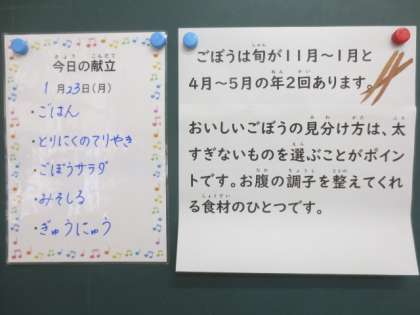 今日の献立
1月23日(月)
・ごはん
・とりにくのてりやき
・ごぼうサラダ
・みそしる
・ぎゅうにゅう
ごぼうは旬が11月～1月と
4月～5月の年2回あります。
おいしいごぼうの見分け方は、太
すぎないものを選ぶことがポイン
トです。お腹の調子を整えてくれ
る食材のひとつです。